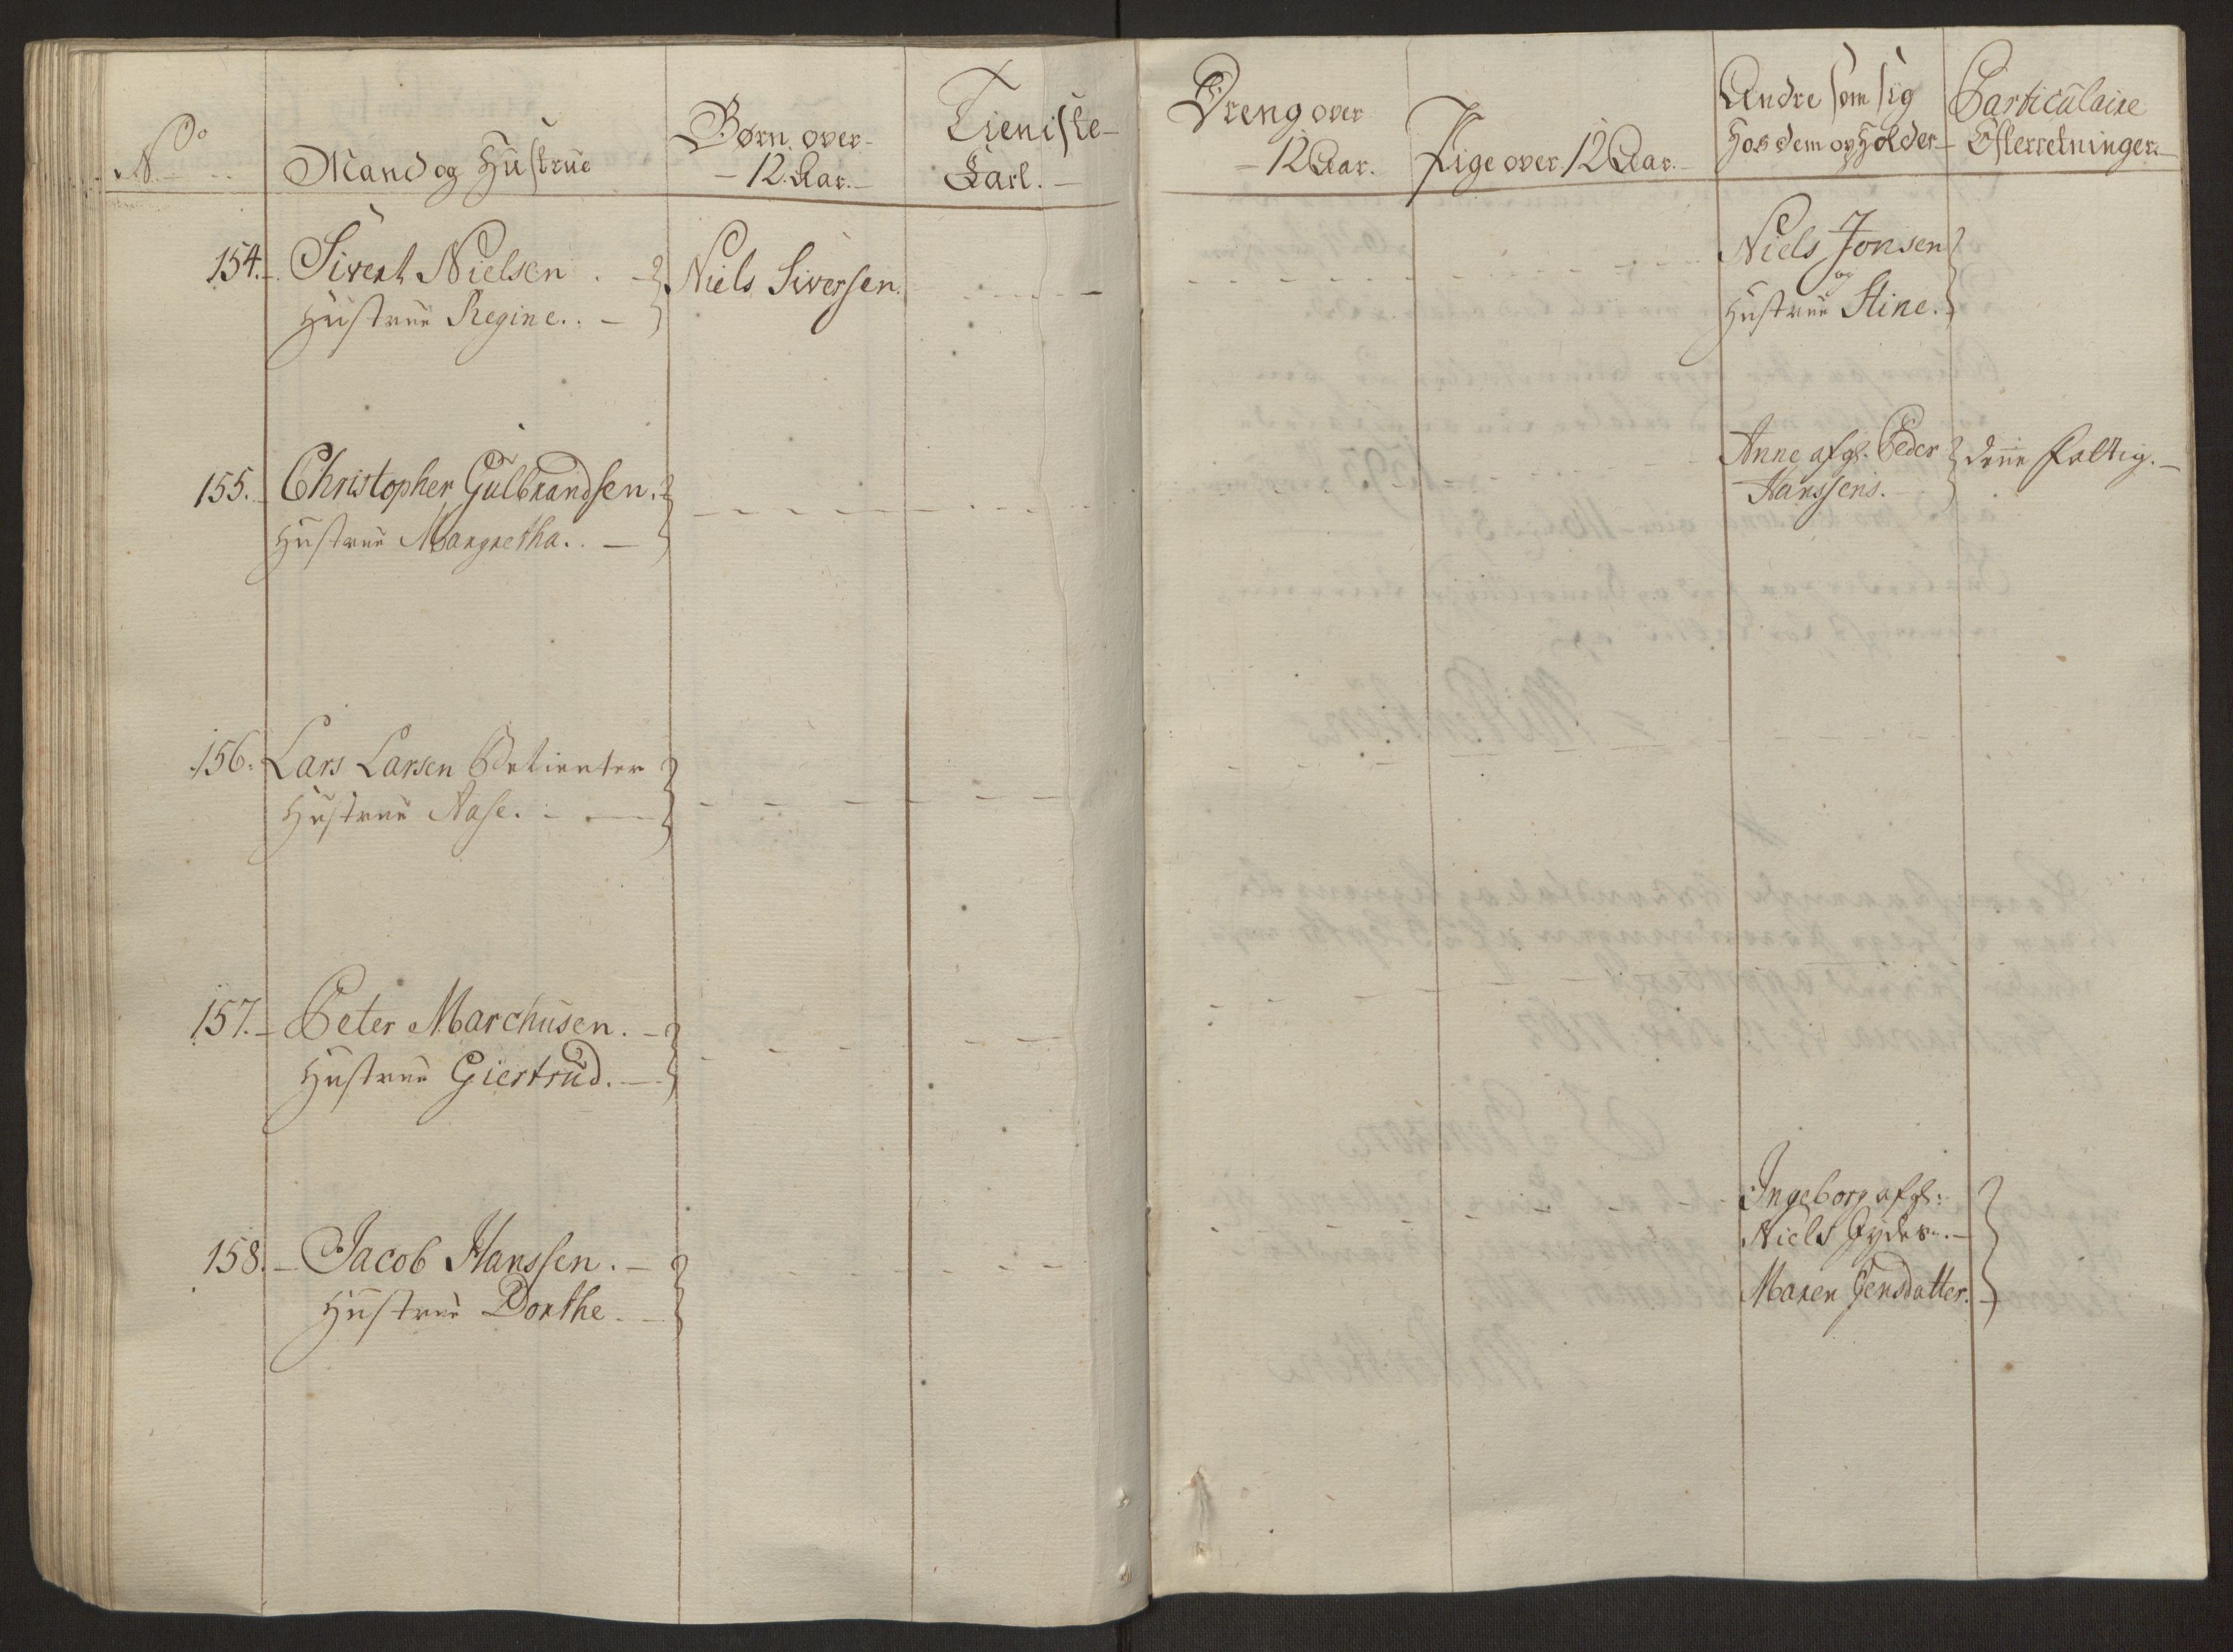 No
Mand og Hustrue
Børn over
12 Aar.
Tieniste
Karl.
Dreng over
12 Aar.
Pige over 12 Aar.
Andre som sig
Hos dem opholder
Particulaire
Efterretninger.
154. Sivert Nielsen
Hustrue Regine.
Niels Siversen.
Niels Jonsen
og
Hustrue Stine.
155. Christopher Gulbrandsen.
Hustrue Margretha.
Anne afg. Peder
Hanssens.
Fattig.
156. Lars Larsen
Hustrue Aase.
157. Peter Marchusen.
Hustrue Giertrud.
158. Jacob Hanssen.
Hustrue Dorthe.
Ingeborg afg:
Niels
Maren Jensdatter.